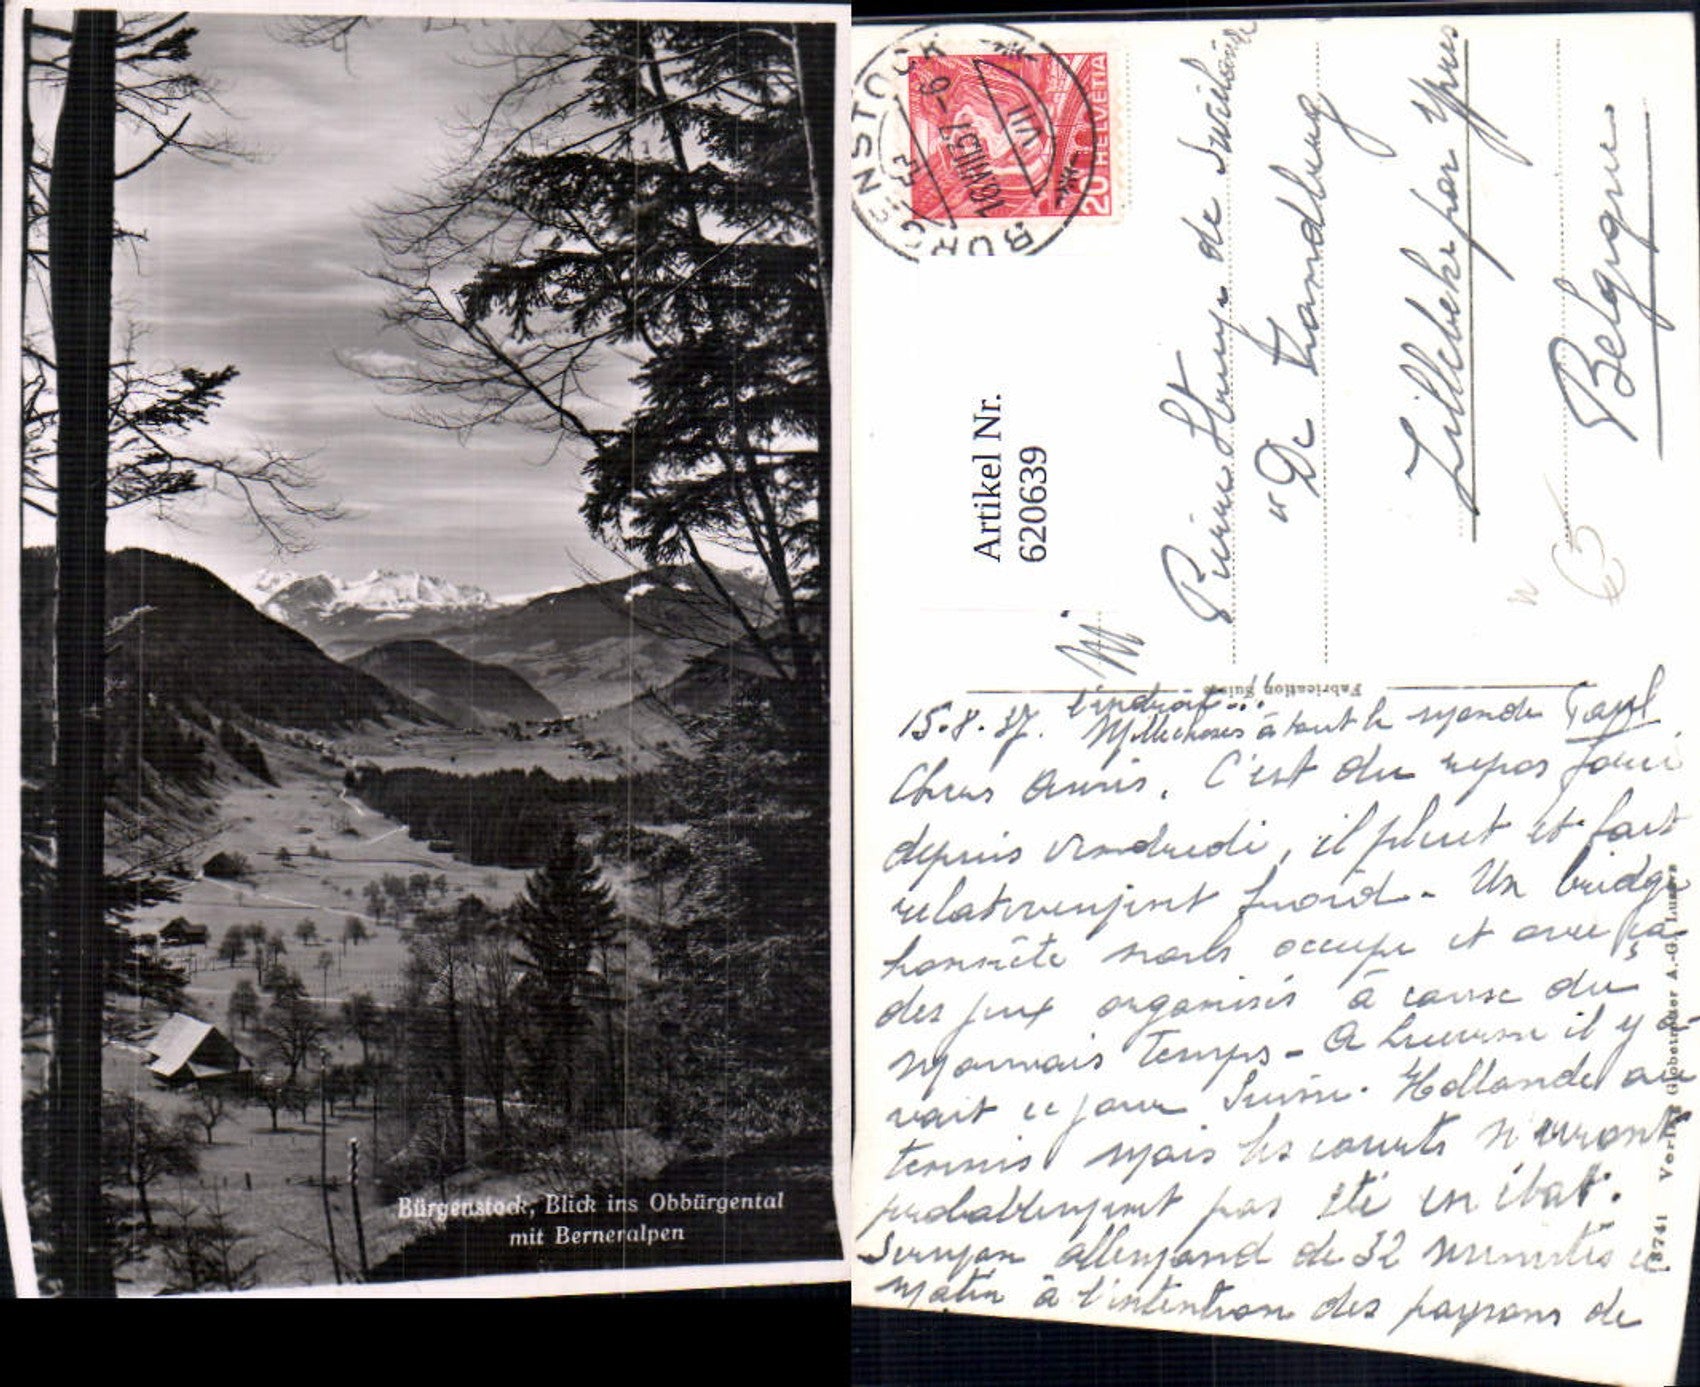 Bürgenstock, Blick ins Obbürgental
mit Berneralpen
BÜRGENSTOCK
16.VIII.37-9
VII
20 HELVETIA
Artikel Nr.
620639
M
Pierre Henry de
"De
Zillebeke par Ypres
Belgique
Fabrication Suisse
Verlag Globetrotter A.-G. Luzern
8741
l'endroit...
15.8.37. Mille choses à tout le monde Paul
Chers Amis. C'est du repos forcé
depuis vendredi, il pleut et fait
relativement froid - Un bridge
honnête nous occupe et avec ça
des jeux organisés à cause du
mauvais temps - A Lucerne il y a-
vait ce jour Suisse-Hollande au
tennis mais les courts n'auront
probablement pas été en état.
Sermon allemand de 32 minutes ce
matin à l'intention des paysans de